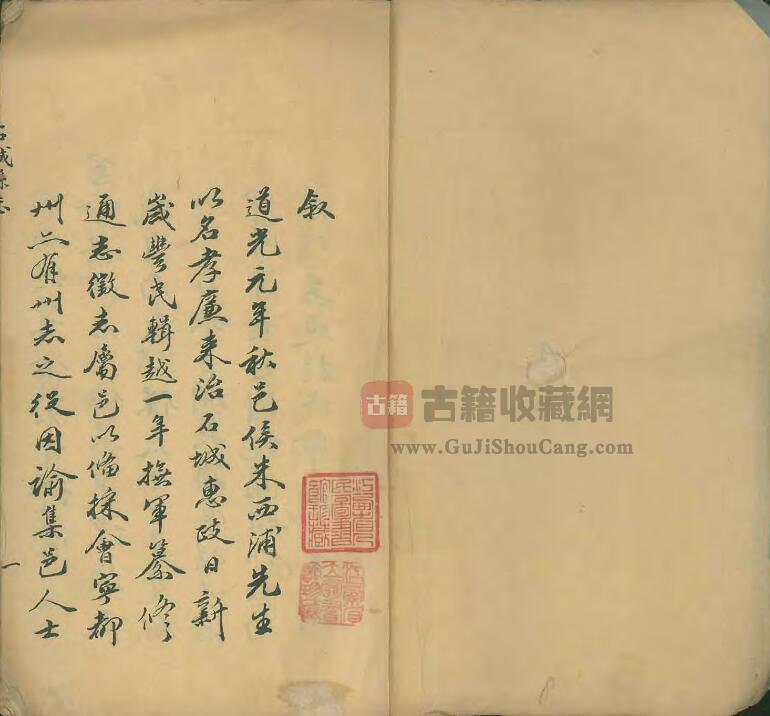 叙
道光元年秋邑侯朱西浦先生
以名孝廉来治石城惠政日新
歲豐民輯越一年撫軍纂修
通志徵志屬邑以備採會寧都
州亦有州志之役因諭集邑人士
一
古籍
古籍收藏網
www.GuJiShouCang.com